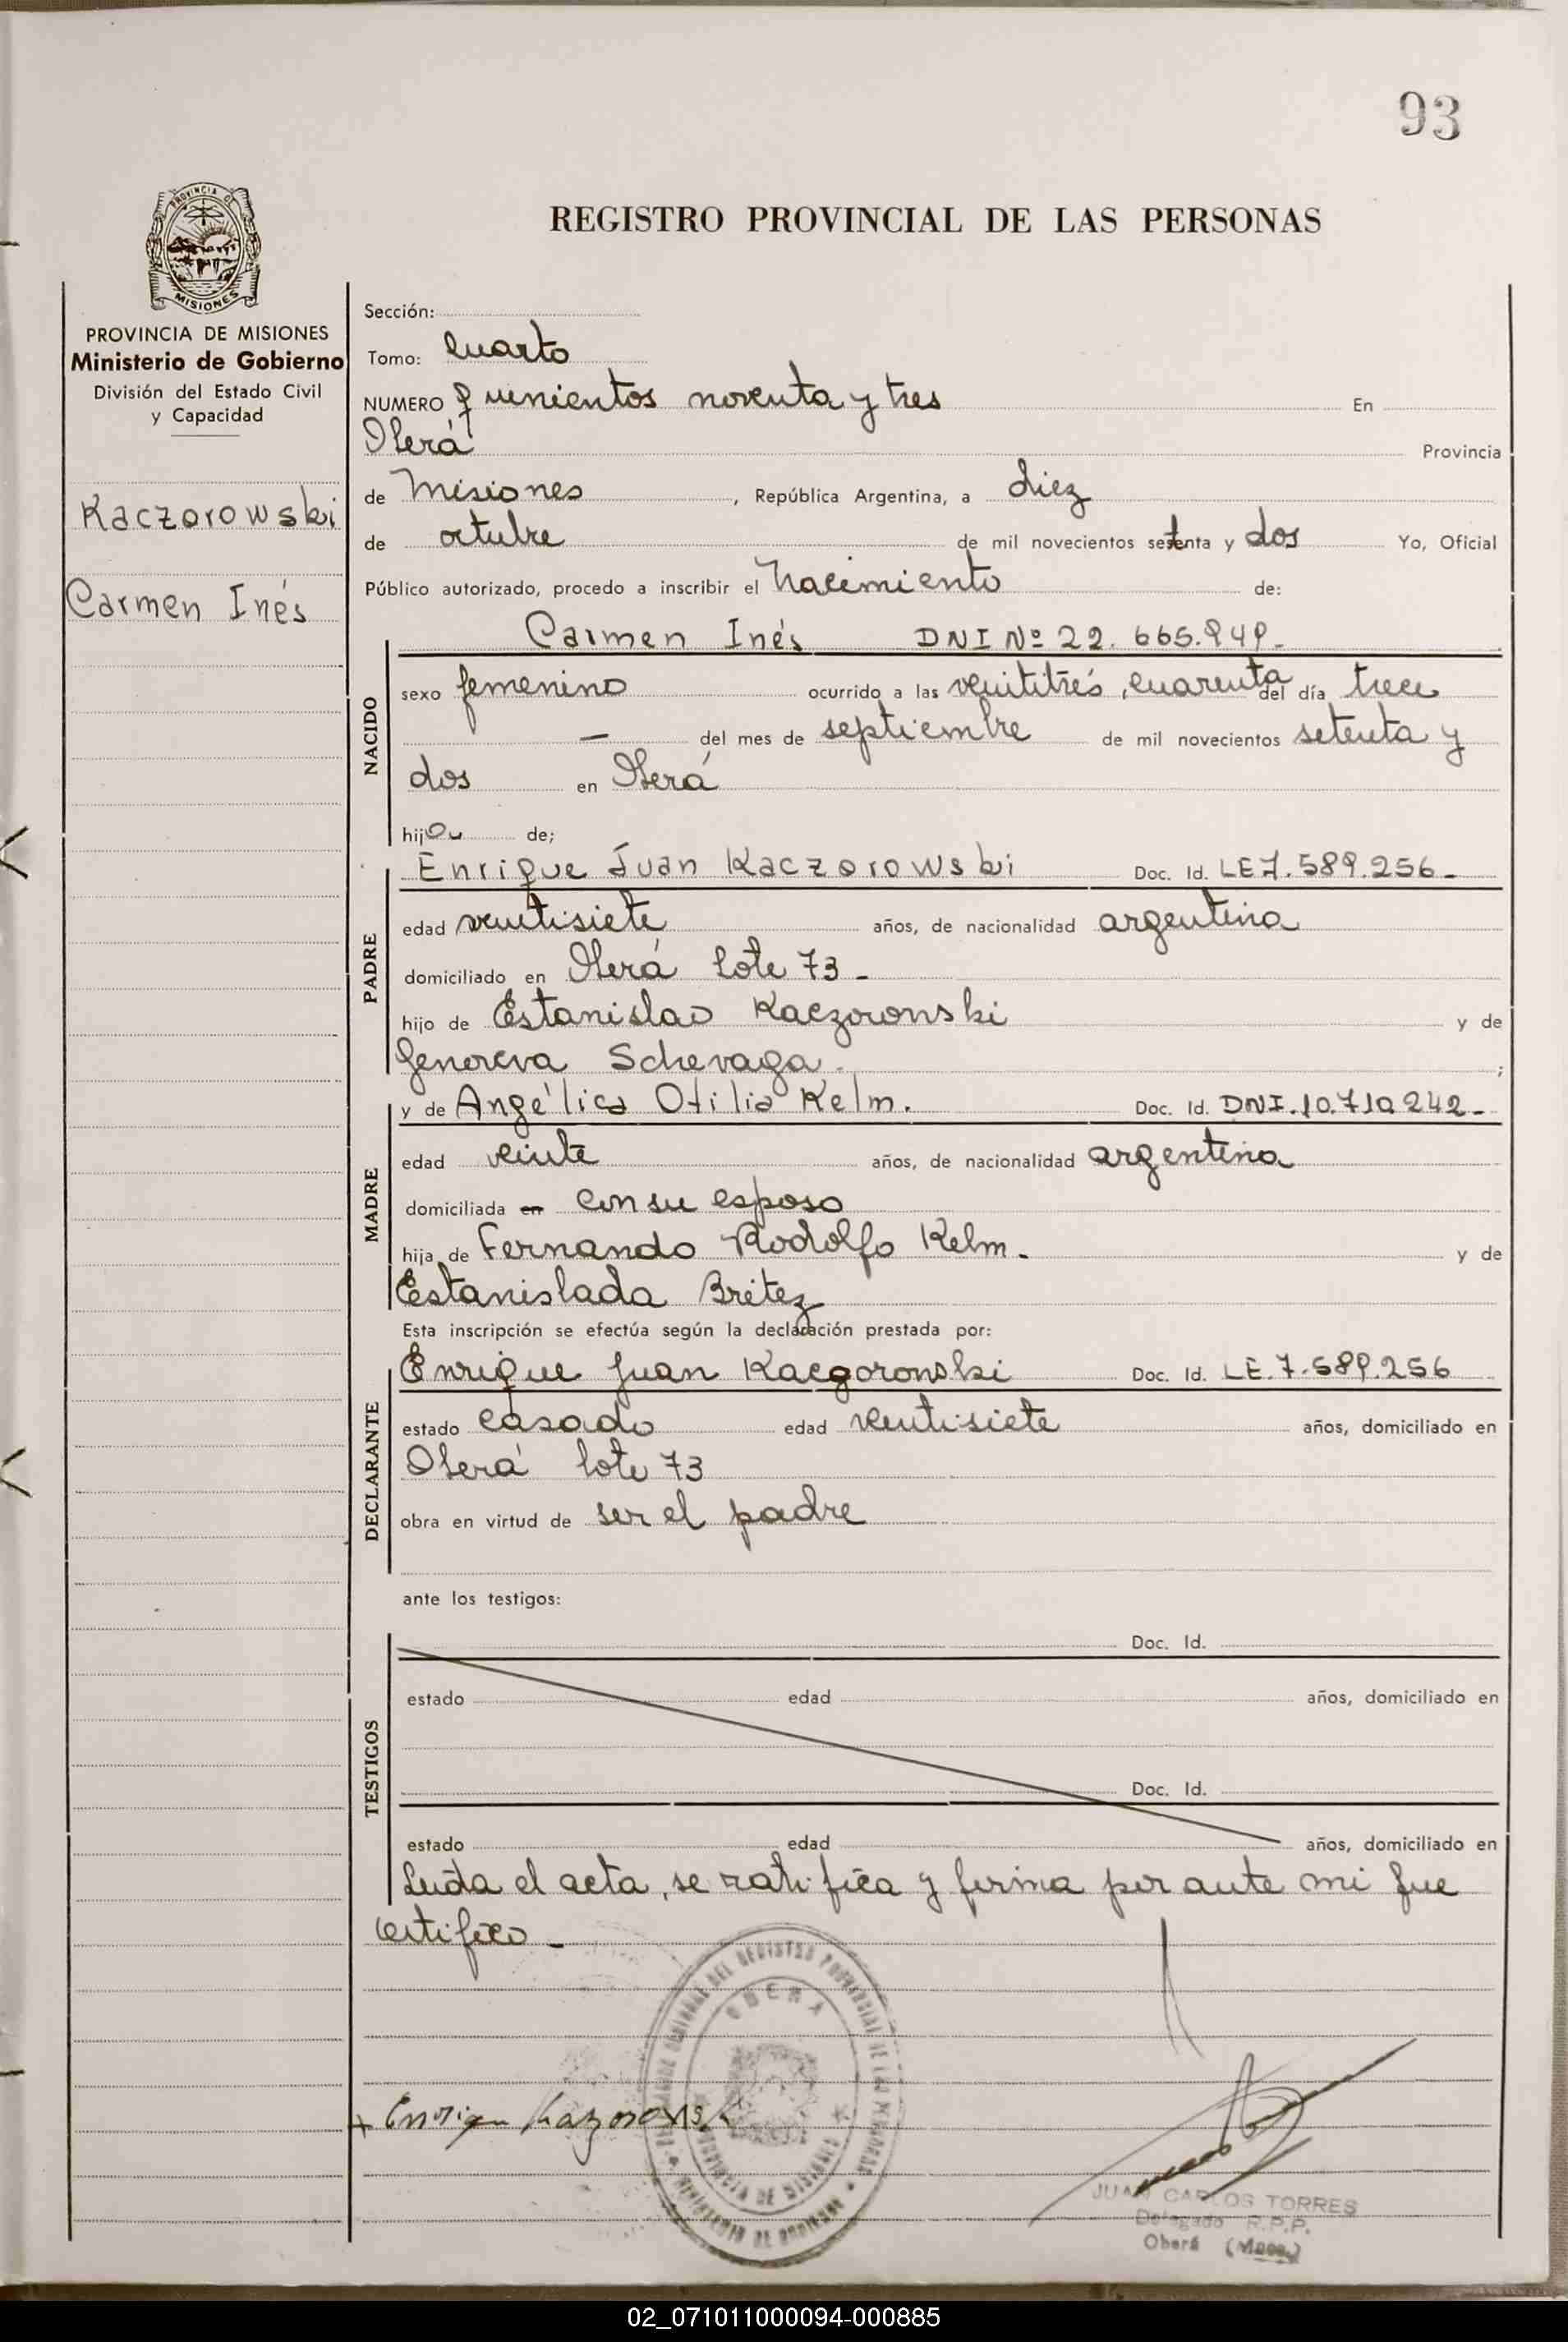 93
REGISTRO PROVINCIAL DE LAS PERSONAS
PROVINCIA DE
MISIONES
PROVINCIA DE MISIONES
Ministerio de Gobierno
División del Estado Civil
y Capacidad
Kaczorowski
Carmen Inés
Sección:
Tomo: Cuarto
NUMERO quinientos noventa y tres En
Oberá Provincia
de Misiones, República Argentina, a diez
de octubre de mil novecientos setenta y dos Yo, Oficial
Público autorizado, procedo a inscribir el Nacimiento de:
Carmen Inés DNI Nº 22.665.949-
NACIDO
sexo femenino ocurrido a las veintitrés, cuarenta del día trece
— del mes de septiembre de mil novecientos setenta y
dos en Oberá
hija de;
PADRE
Enrique Juan Kaczorowski Doc. Id. LE 7.589.256-
edad ventisiete años, de nacionalidad argentina
domiciliado en Oberá lote 73-
hijo de Estanislao Kaczorowski y de
Genoveva Schevaga.;
MADRE
y de Angélica Otilia Kelm. Doc. Id. DNI.10.710.242-
edad veinte años, de nacionalidad argentina
domiciliada en con su esposo
hija de Fernando Rodolfo Kelm. y de
Estanislada Britez
Esta inscripción se efectúa según la declaración prestada por:
DECLARANTE
Enrique Juan Kaczorowski Doc. Id. LE.7.589.256
estado casado edad ventisiete años, domiciliado en
Oberá lote 73
obra en virtud de ser el padre
ante los testigos:
TESTIGOS
Doc. Id.
estado edad años, domiciliado en
Doc. Id.
estado edad años, domiciliado en
Leída el acta, se ratifica y firma por ante mi que
certifico-
OBERA
PROVINCIA DE MISIONES
MINISTERIO DE GOBIERNO
JUAN CARLOS TORRES
Delegado R.P.P.
Oberá (Mnes.)
02_071011000094-000885